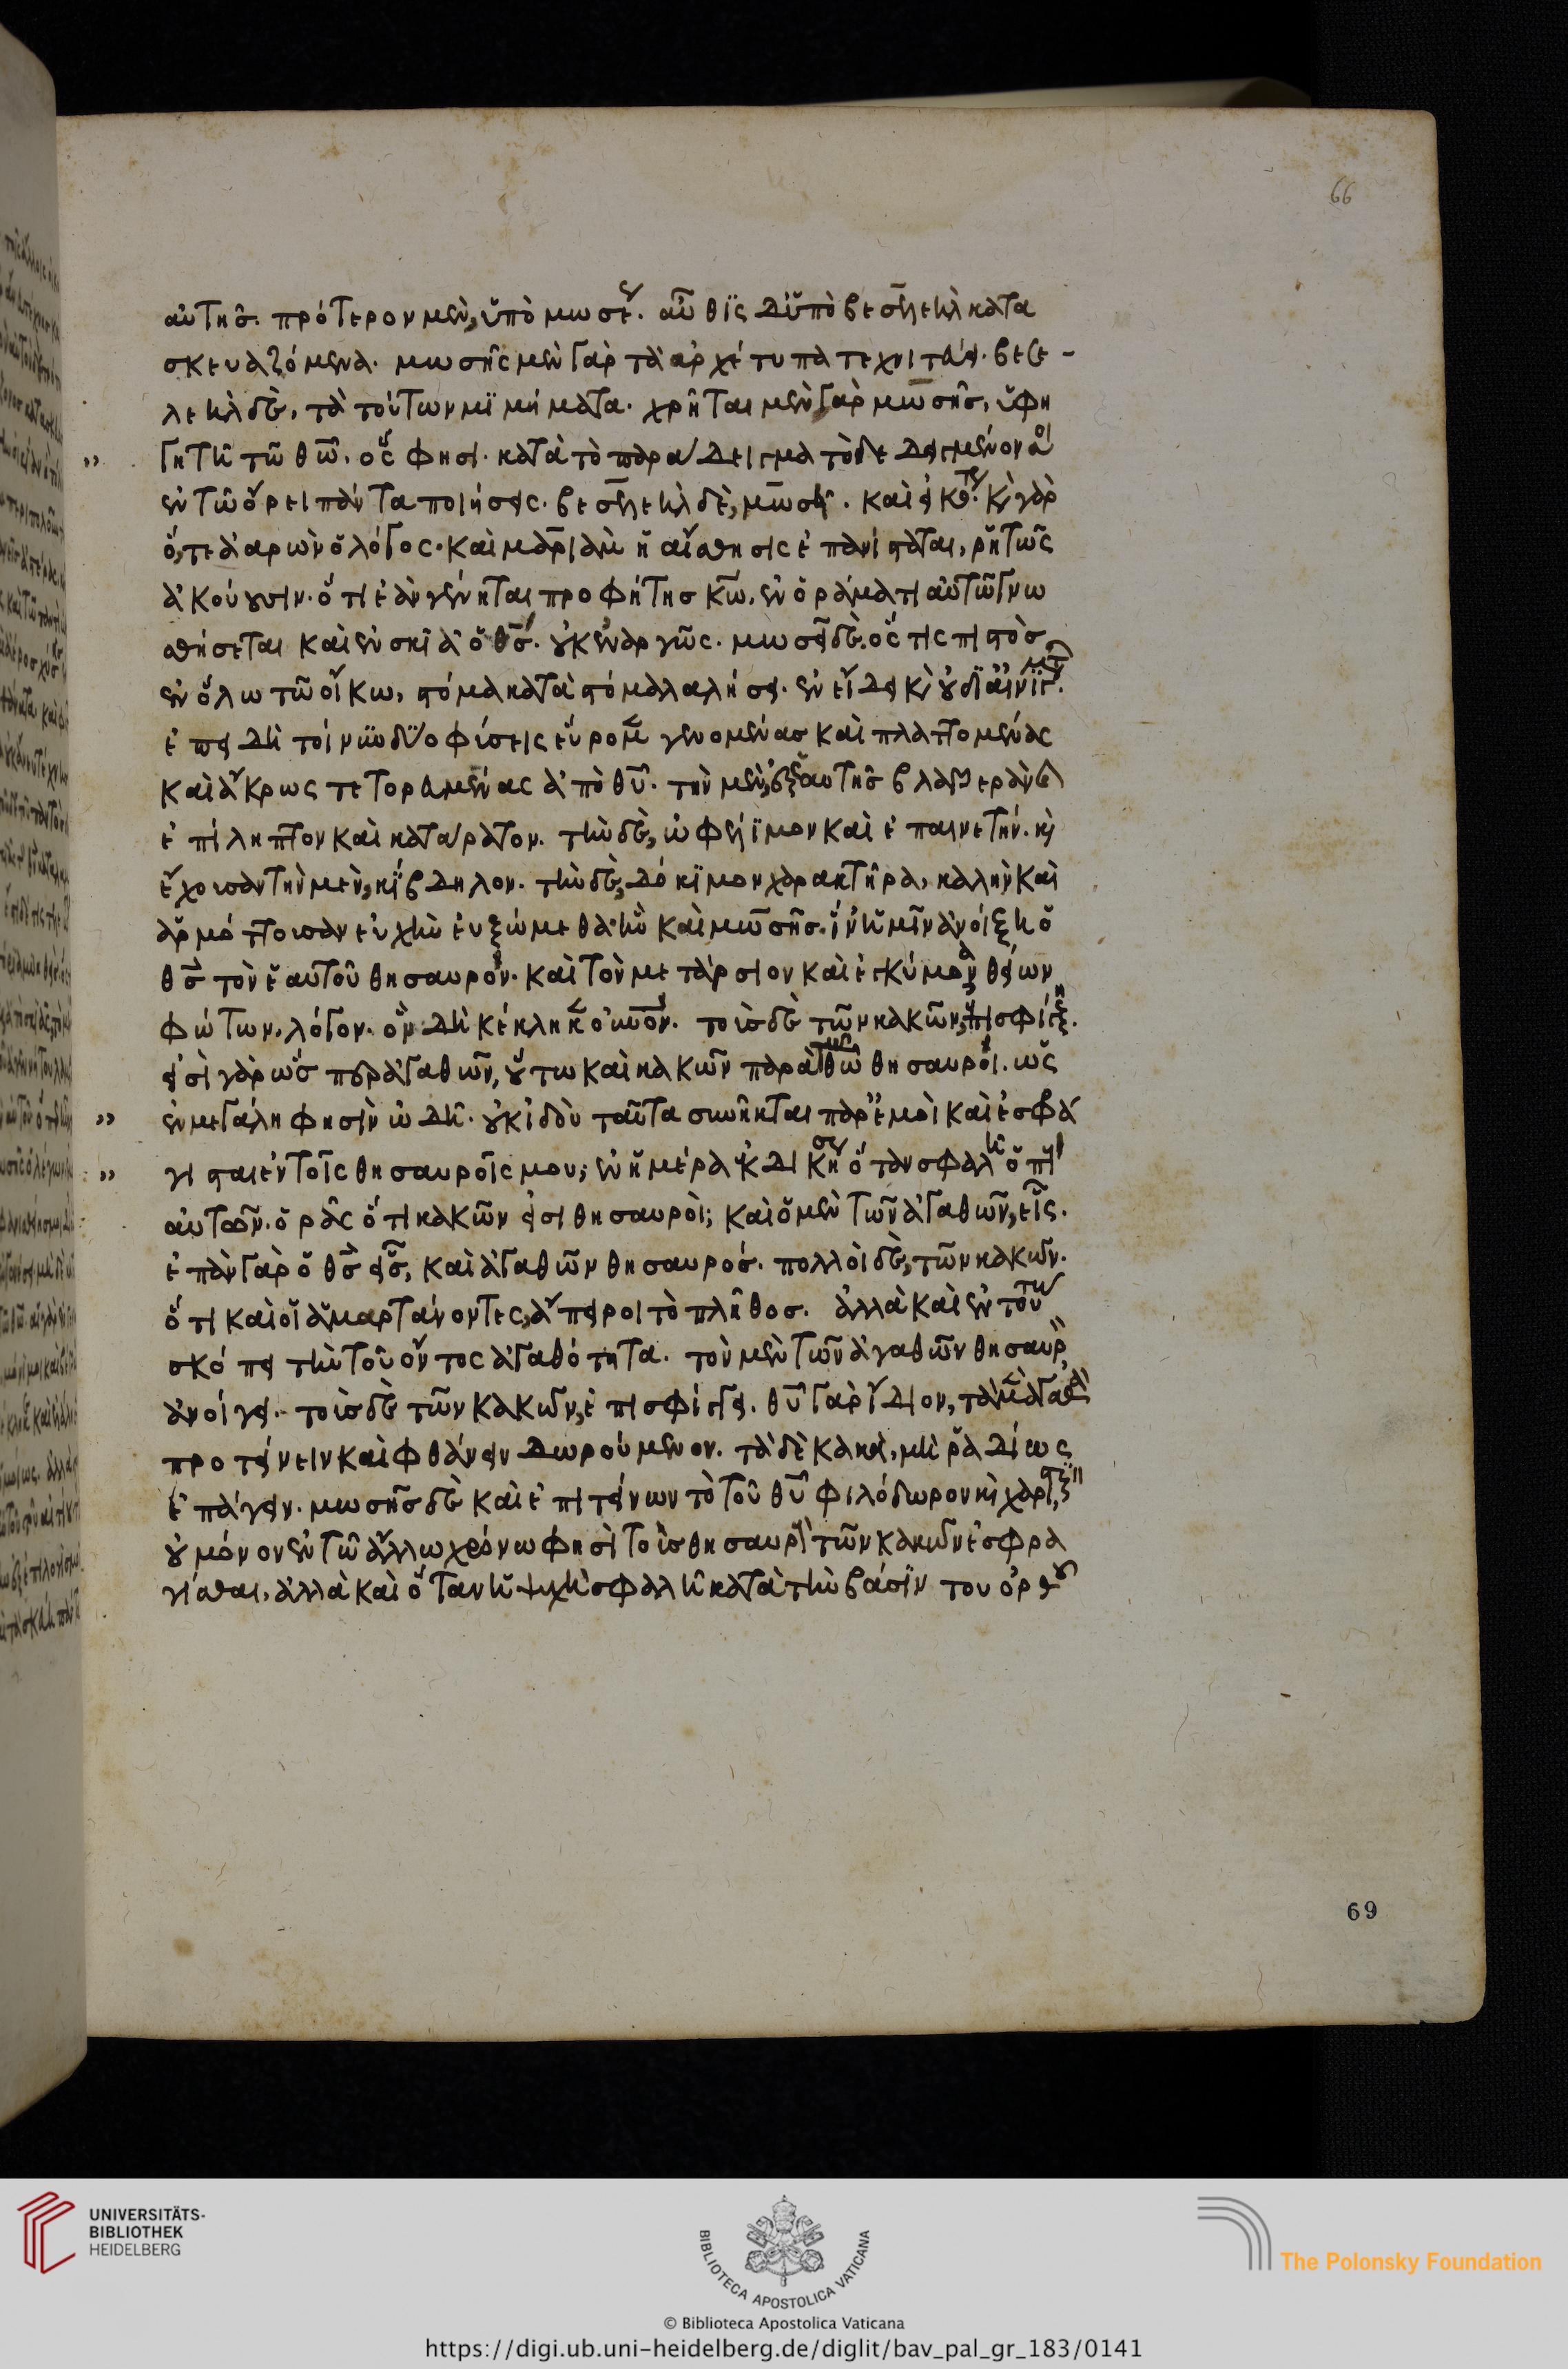 66
αὐτῆς. πρότερον μὲν, ὑπὸ μωσέως. αὖθις δ' ὑπὸ βεσελεὴλ κατα
σκευαζόμενα. μωσῆς μὲν γὰρ τὰ ἀρχέτυπα τεχνιτεύει. βεσε-
λεὴλ δὲ, τὰ τούτων μϊμήματα. χρῆται μὲν γὰρ μωσῆς, ὑφη
γητῆ τῶ θω. ὅς φησι. κατὰ τὸ παράδειγμα τὸ δεδειγμένον σοι
ἐν τῶ ὄρει πάντα ποιήσεις. βεσελεὴλ δὲ, μωσῆ. καὶ εἰκότως. κὶ γὰρ
ὅτε ἀαρὼν ὁ λόγος. καὶ μαριὰμ ἡ αἴσθησις ἐπανίσταται, ῥητῶς
ἀκούουσιν. ὅτι ἐὰν γένηται προφήτης κω, ἐν ὁράματι αὐτῶ γνω
σθήσεται καὶ ἐν σκιᾶ ὁ θς. οὐκ ἐναργῶς. μωσεῖ δὲ. ὅς τις πιστὸς
ἐν ὅλω τῶ οἴκω, στόμα κατὰ στόμα λαλήσει. ἐν εἴδει κὶ οὐ δι' αἰνιγμάτων.
ἐπειδὴ τοίνυν δύο φύσεις εὕρομεν γενομένας καὶ πλαττομένας
καὶ ἄκρως τετορευμένας ἀπὸ θυ. τὴν μὲν, ἐξ ἑαυτῆς βλαβερὰν
ἐπίληπτον καὶ κατάρατον. τὴν δὲ, ὠφελιμον καὶ ἐπαινετήν. κὶ
ἔχουσαν τὴν μὲν, κίβδηλον. τὴν δὲ, δόκϊμον χαρακτῆρα, καλὴν καὶ
ἁρμόττουσαν εὐχὴν εὐξώμεθα ἣν καὶ μωσῆς. ἵν' ἡμῖν ἀνοίξη ὁ
θς τὸν ἑαυτοῦ θησαυρόν. καὶ τὸν μετάρσιον καὶ ἐγκύμονα θείων
φώτων, λόγον. ὃν δὴ κέκληκεν οὐνον. τοὺς δὲ τῶν κακῶν, ἐπισφίγξη.
εἰσὶ γὰρ ὡς παρὰ ἀγαθῶν, οὕτω καὶ κακῶν παρὰ τῶ θω θησαυροὶ. ὡς
ἐν μεγάλη φησὶν ὠδῆ. οὐκ ἰδοὺ ταῦτα συνῆκται παρ' ἐμοὶ καὶ ἐσφρά
γισται ἐν τοῖς θησαυροῖς μου; ἐν ἡμέρα ἐκδικήσεως ὅταν σφαλῆ ὁ ποῦς
αὐτῶν. ὁρᾶς ὅτι κακῶν εἰσι θησαυροὶ; καὶ ὁ μὲν τῶν ἀγαθῶν, εἷς.
ἐπὰν γὰρ ὁ θς εἷς, καὶ ἀγαθῶν θησαυρός. πολλοὶ δὲ, τῶν κακῶν.
ὅτι καὶ οἱ ἁμαρτάνοντες, ἄπειροι τὸ πλῆθος. ἀλλὰ καὶ ἐν τούτω
σκόπει τὴν τοῦ ὄντος ἀγαθότητα. τὸν μὲν τῶν ἀγαθῶν θησαυρὸν
ἀνοίγει. τοὺς δὲ τῶν κακῶν, ἐπισφίγγει. θυ γὰρ ἴδιον, τὰ μὲν ἀγαθὰ
προτείνειν καὶ φθάνειν δωρούμενον. τὰ δὲ κακὰ, μὴ ῥαδίως
ἐπάγειν. μωσῆς δὲ καὶ ἐπιτείνων τὸ τοῦ θυ φιλόδωρον κὶ χαριστικὸν
οὐ μόνον ἐν τῶ ἄλλω χρόνω φησὶ τοὺς θησαυροὺς τῶν κακῶν ἐσφρα
γίσθαι, ἀλλὰ καὶ ὅταν ἡ ψυχὴ σφαλῆ κατὰ τὴν βάσϊν του ὀρθοῦ
69
UNIVERSITÄTS-
BIBLIOTHEK
HEIDELBERG
BIBLIOTECA APOSTOLICA VATICANA
The Polonsky Foundation
© Biblioteca Apostolica Vaticana
https://digi.ub.uni-heidelberg.de/diglit/bav_pal_gr_183/0141